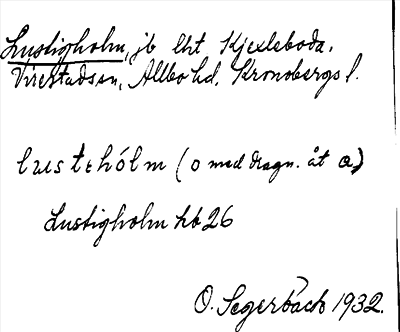 Lustigholm, jb lht Kjexleboda,
Virestads sn, Allbo hd, Kronobergs l.
lustehólm (o med dragn. åt a)
Lustigholm hb 26
O. Segerback 1932.